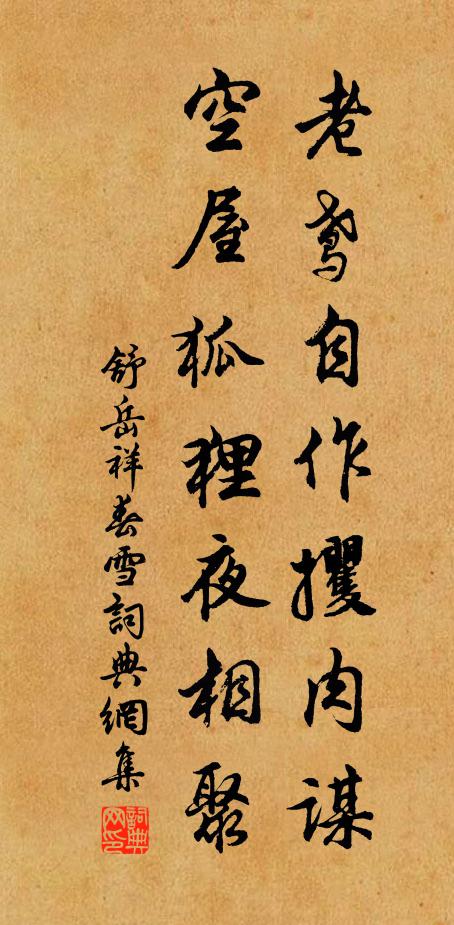 老鸢自作攫肉謀
空屋狐狸夜相聚
舒岳祥春雪詞典網集
詞典网印